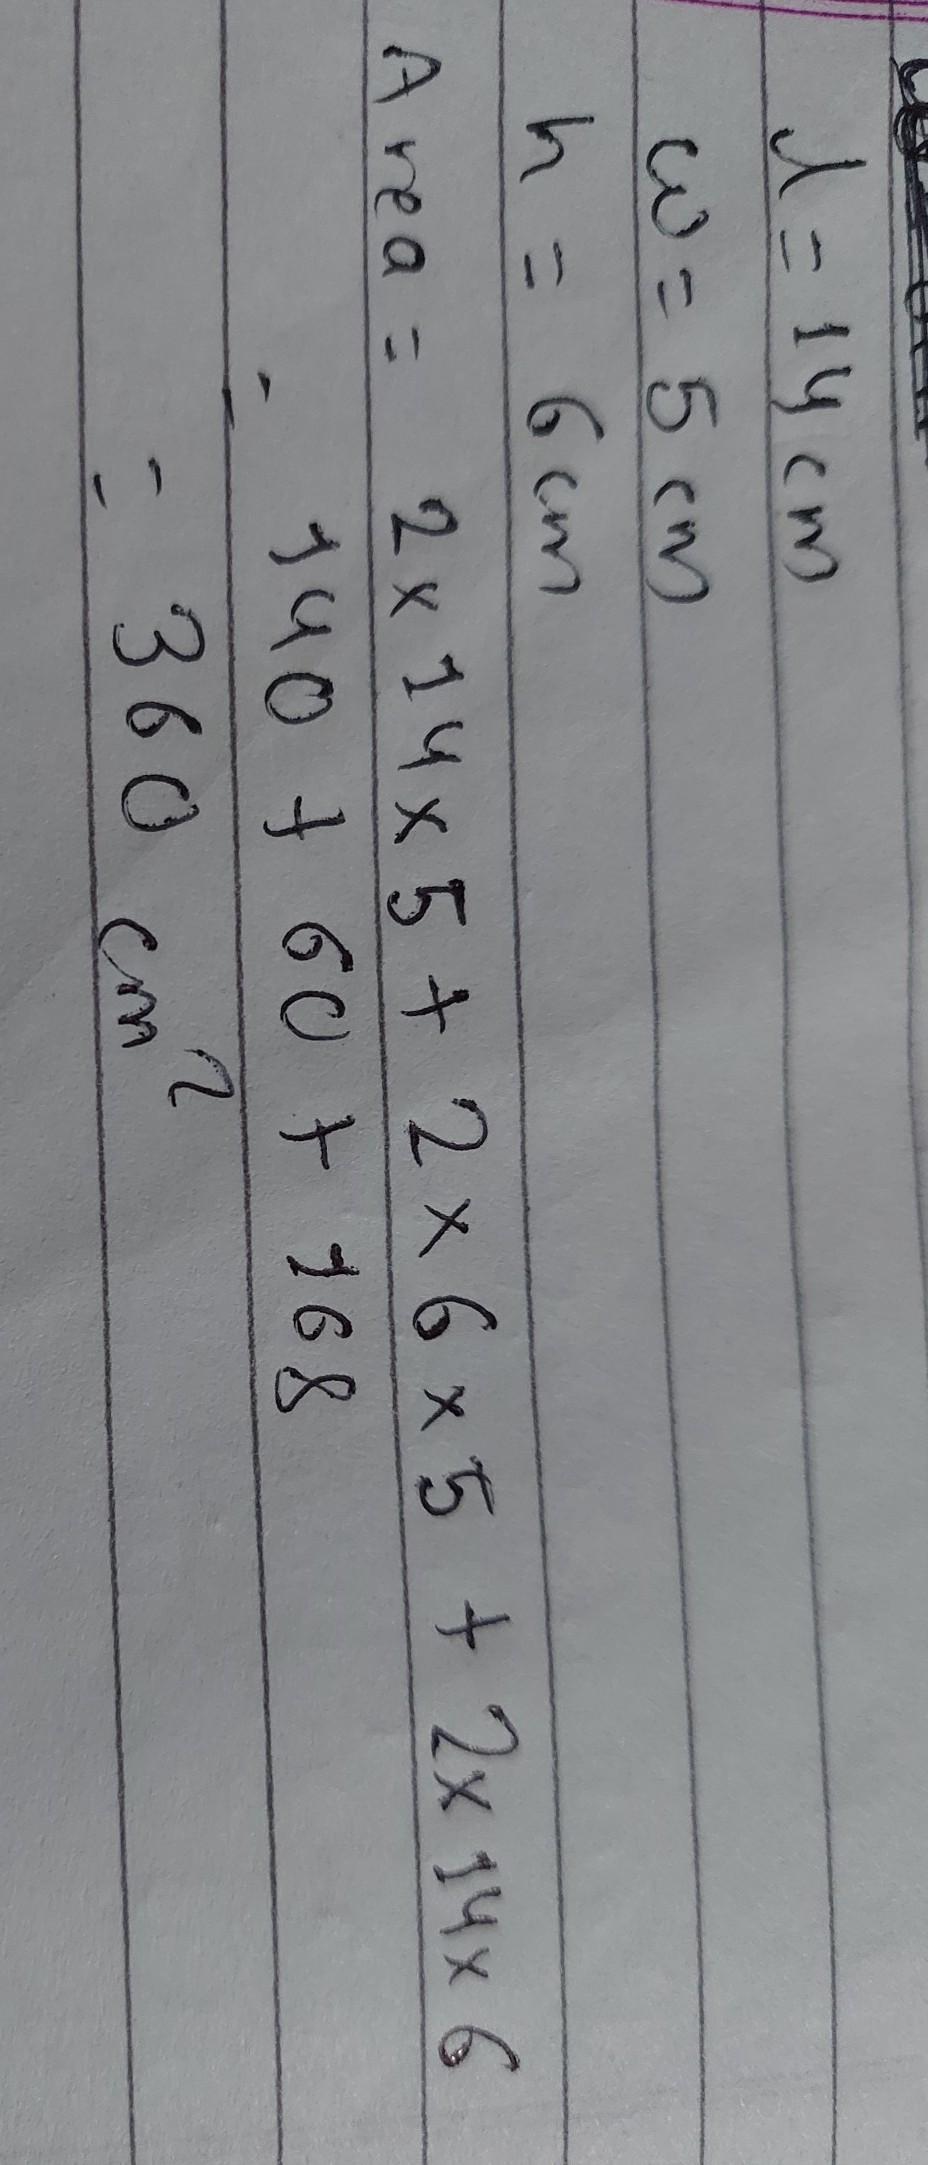 l = 14 cm
w = 5 cm
h = 6 cm
Area = 2 x 14 x 5 + 2 x 6 x 5 + 2 x 14 x 6
= 140 + 60 + 168
= 360 cm²